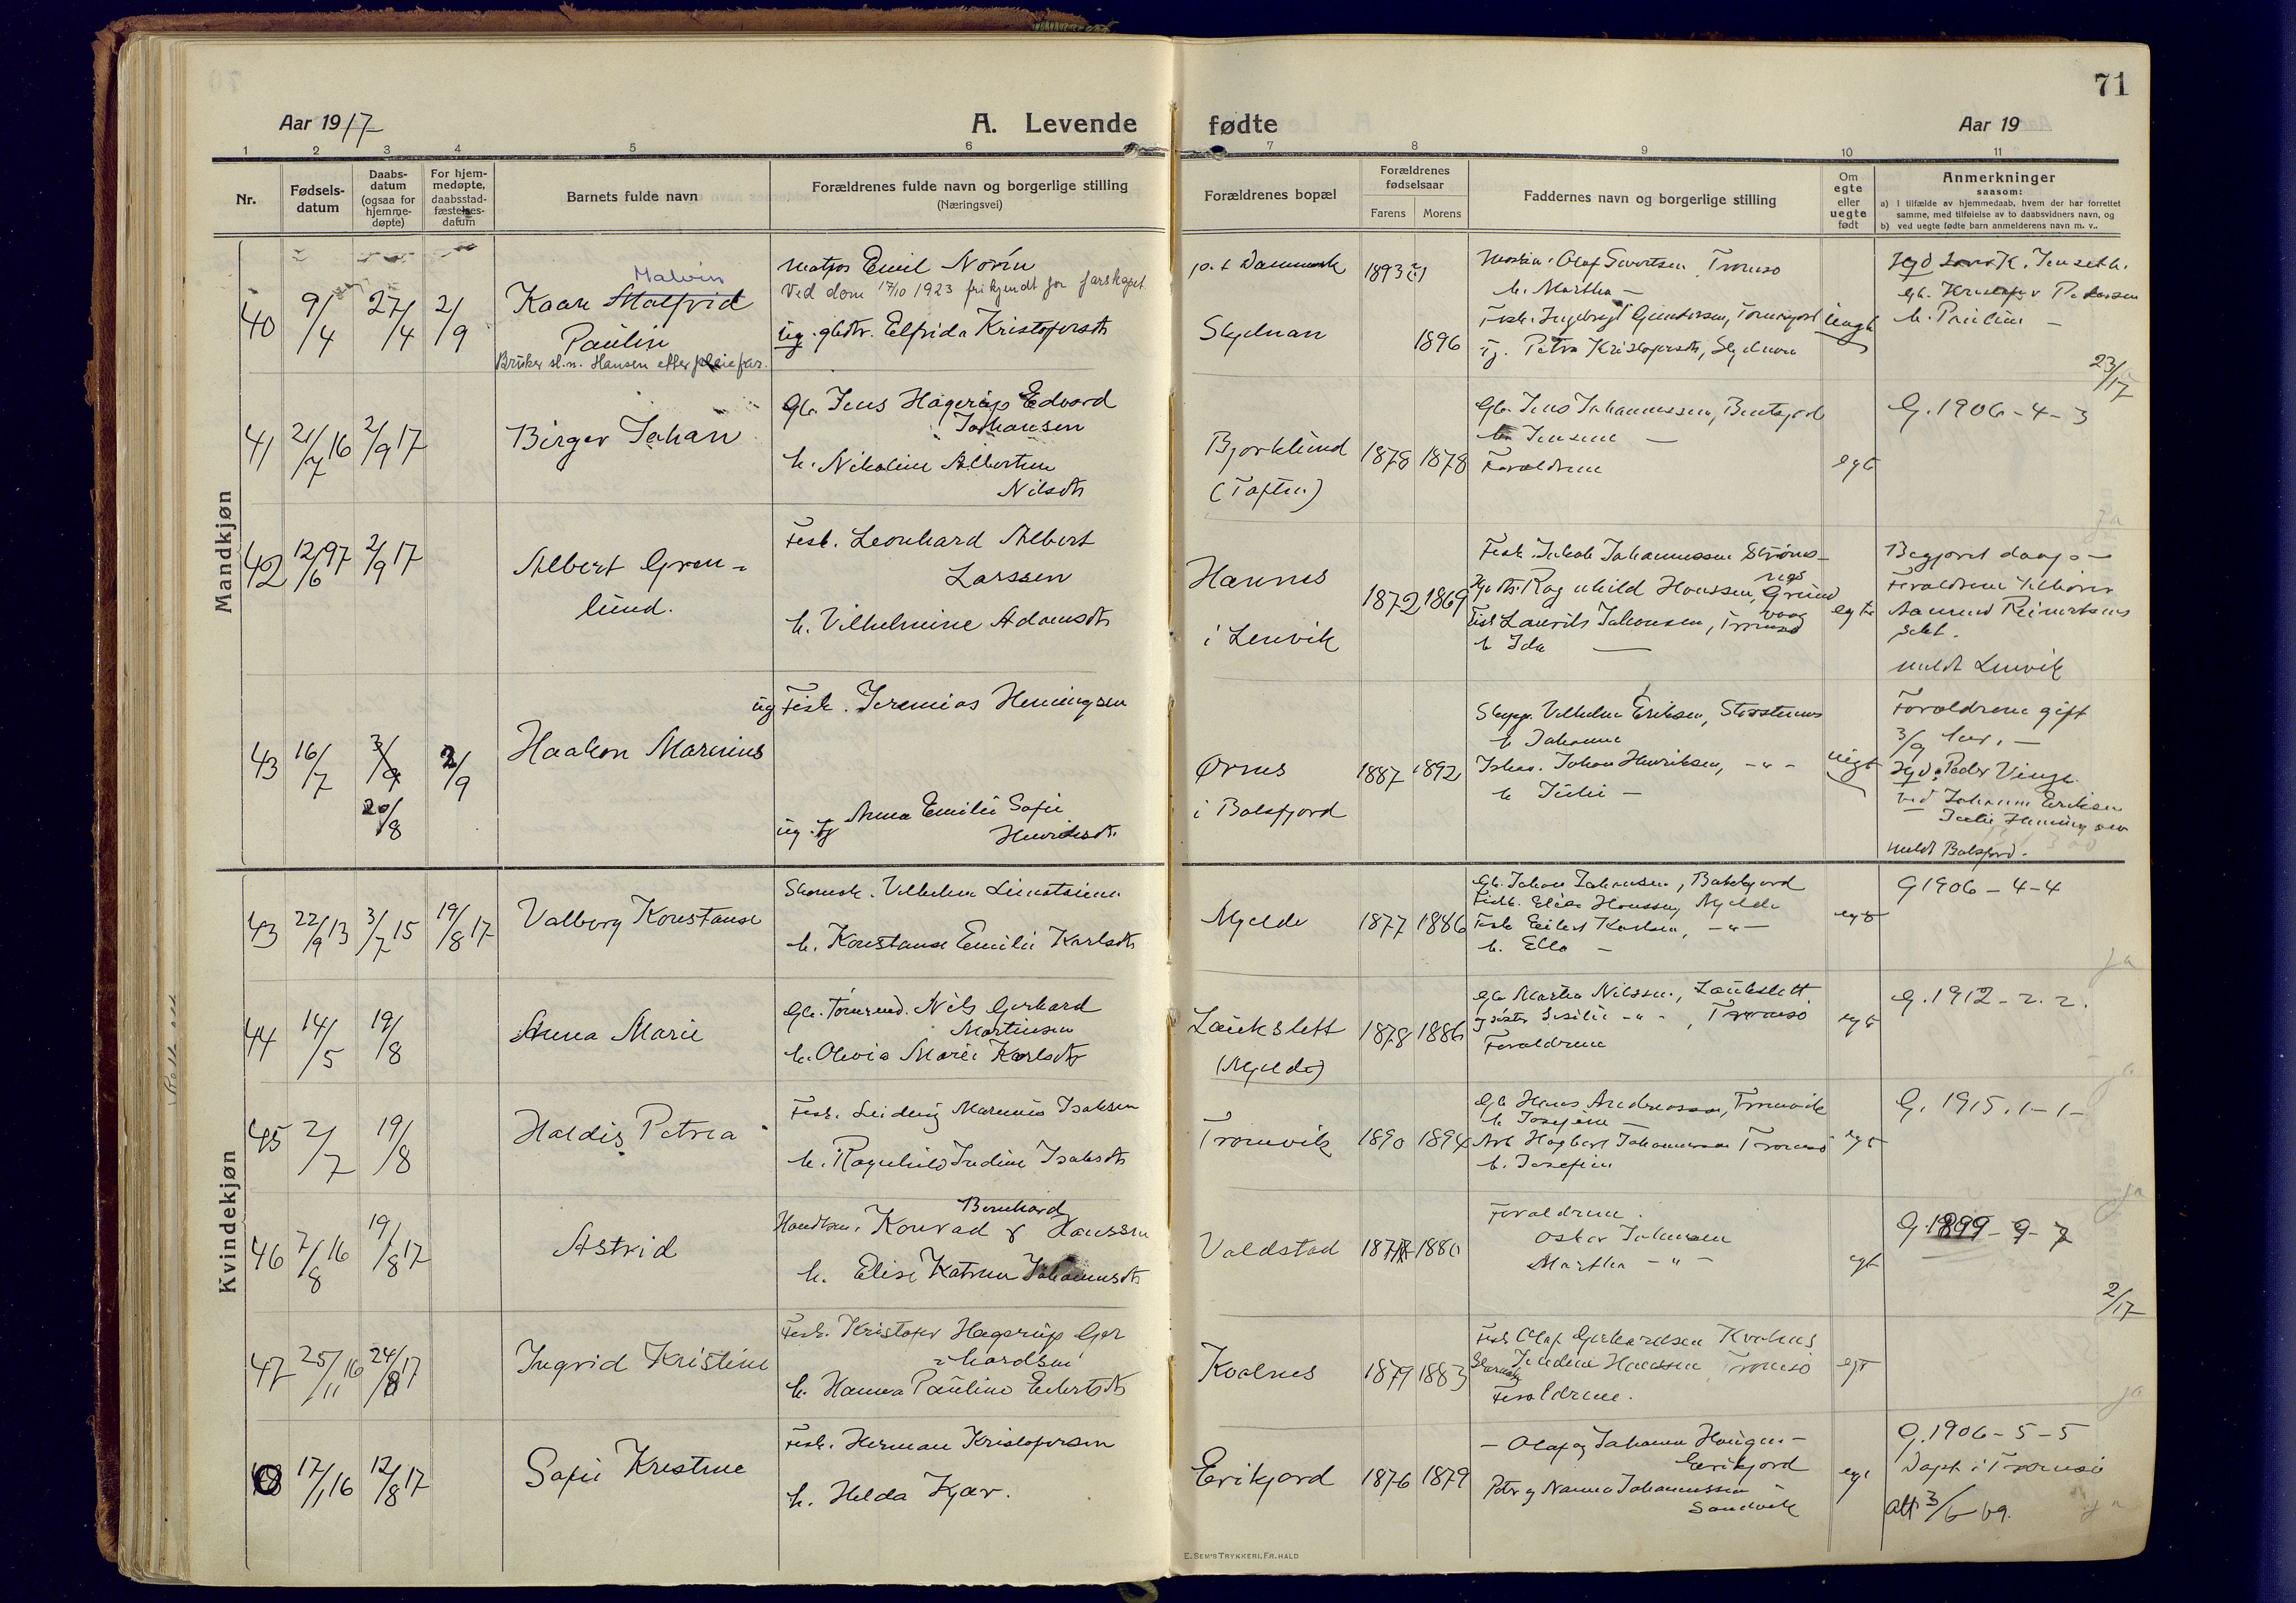 71
Aar 1917
A. Levende fødte
Aar 19
1 2 3 4 5 6 7 8 9 10 11
Nr.
Fødsels-
datum
Daabs-
datum
(ogsaa for
hjemme-
døpte)
For hjem-
medøpte,
daabsstad-
fæstelses-
datum
Barnets fulde navn
Forældrenes fulde navn og borgerlige stilling
(Næringsvei)
Forældrenes bopæl
Forældrenes
fødselsaar
Farens Morens
Faddernes navn og borgerlige stilling
Om
egte
eller
uegte
født
Anmerkninger
saasom:
a) I tilfælde av hjemmedaab, hvem der har forrettet
samme, med tilføielse av to daabsvidners navn, og
b) ved uegte fødte barn anmelderens navn m. v..
Mandkjøn
40 9/4 27/4 2/9
Malvin
Kaare Malfrid
Paulin
Bruker sl.n. Hansen efter pleiefar.
Matros Emil Norin
Ved dom 17/10 1923 frikjendt for farskapet
ug. gbdtr. Elfrida Kristofersdtr
p.t. Danmark
Skjelnan
1893 (?)
1896
Olaf Sivertsen, Tromsø
h. Martha —
Fisk. Ingebrigt Gundersen,
Petra Kristofersdtr, Skjelnan
uegte
h. Pauline —
23/17
41 21/7 16 2/9 17
Birger Johan
Gbr. Jens Hagerup Edvard
Johansen
h. Nikoline Albertine
Nilsdtr
Bjorklund
(Toften)
1878 1878
Gbr. Jens Johannessen, Bentsjord
h. Jensine —
Forældrene
egte
G. 1906 - 4 - 3
ja
42 12/6 97 2/9 17
Albert Gron-
lund.
Fisk. Leonhard Albert
Larssen
h. Vilhelmine Adamsdtr
Hannes
i Lenvik
1872 1869
Fisk. Jakob Johannessen Strøms-
nes
Ragnhild Hanssen, Grund
vaag
Fisk Laurits Johansen, Tromsø
h Ida —
egte
Begjæret daap —
Forældrene tilhører
sekt.
meldt Lenvik
43 16/7 3/9 2/9
20/8
Haakon Marinius
ug Fisk. Jeremias Henningsen
ug. tj Anna Emilie Sofie
Henriksdtr.
Ørnes
i Balsfjord
1887 1892
Skipp. Vilhelm Eriksen,
h Johanne
Johan Henriksen, - " -
h Julie —
uegt
Forældrene gift
3/9 her. —
Hjd: Peder Vinje
ved Johanne Eriksen
Julie Henningsen
meldt Balsfjord.
Kvindekjøn
43 22/9 13 3/7 15 19/8 17
Valborg Konstanse
Skomak. Vilhelm
h. Konstanse Emilie Karlsdtr
Mjelde
1877 1886
Gbr. Johan Johansen, Bakkejord
Fiskk. Elise Hanssen, Mjelde
Fisk Eilert Karlsen, - " -
h. Ella —
egte
G 1906 - 4 - 4
ja
44 14/5 19/8
Anna Marie
Gbr. Tømrmd. Nils Gerhard
Martinsen
h. Olivia Marie Karlsdtr
Laukslett
(Mjelde)
1878 1886
Gbr Martin Nilssen, Laukslett
og søster Sesilie - " -, Tromsø
Forældrene
egte
G. 1912 - 2. 2.
ja
45 2/7 19/8
Haldis Petrea
Fisk. Leidvig Marinius Isaksen
h. Ragnhild Indine Isaksdtr
Tromvik
1890 1894
Gb Hans Andreassen, Tromvik
h. Josefine —
Arb Hagbart Johannessen Tromsø
h. Josefine
egt
G. 1915. 1 - 1 -
ja
46 7/8 16 19/8 17
Astrid
Bernhard
Handlsm. Konrad Hanssen
h. Elise Katrine Johannesdtr
Valdstad
1880
Forældrene.
Oskar Johansen
Martha - " -
egt
G. 1899 - 9 - 7
2/17
47 25/11 16 24/8 17
Ingrid Kristine
Fisk. Kristofer Hagerup Ger
= hardsen
h. Hanna Pauline Eilertsdtr
Kvalnes
1879 1883
Fisk Olaf Gerhardsen Kvalnes
Jendine Hanssen Tromsø
Forældrene.
egt
ja
17/1 16 12/8 17
Sofie Kristine
Fisk. Herman Kristofersen
h. Helda Kjær.
Eerikjord
1876 1879
— Olaf og Johanna Haugen —
Eerikjord
Petr og Nanna Johannessen
Sandvik
egt
G. 1906 - 5 - 5
Døpt i Tromsø
Att 3/6 - 69.
ja
E. SEM'S TRYKKERI, FR.HALD